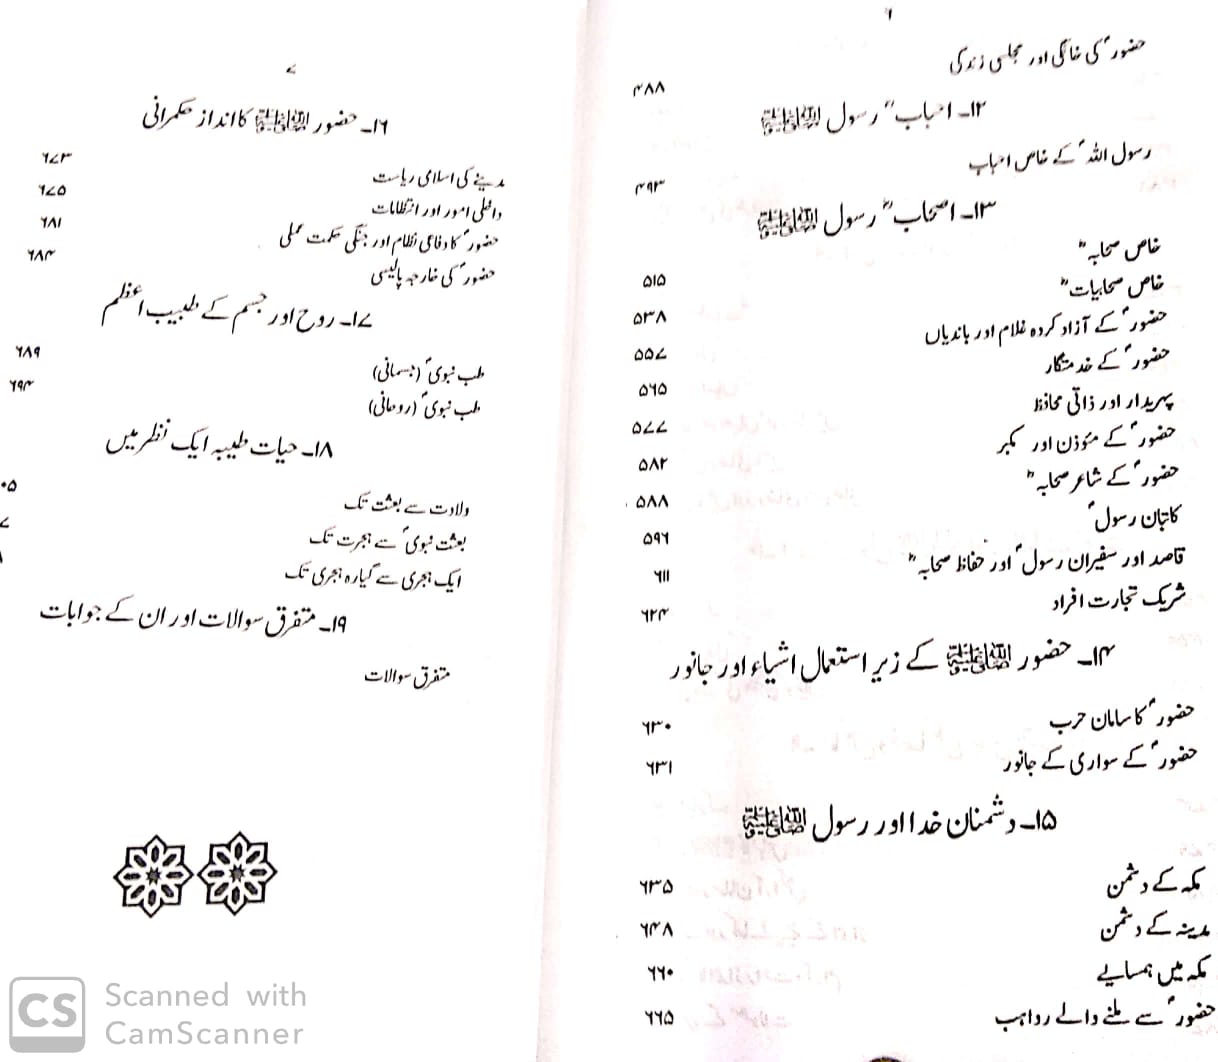 ۶
حضورؐ کی خانگی اور مجلسی زندگی ۴۸۸
۱۲۔ احبابؓ رسول ﷺ
رسول اللہؐ کے خاص احباب ۴۹۳
۱۳۔ اصحابؓ رسول ﷺ
خاص صحابہؓ ۵۱۵
خاص صحابیاتؓ ۵۳۸
حضورؐ کے آزاد کردہ غلام اور باندیاں ۵۵۷
حضورؐ کے خدمتگار ۵۶۵
پہریدار اور ذاتی محافظ ۵۷۷
حضورؐ کے مؤذن اور مکبر ۵۸۲
حضورؐ کے شاعر صحابہؓ ۵۸۸
کاتبان رسولؐ ۵۹۶
قاصد اور سفیران رسولؐ اور حفاظ صحابہؓ ۶۱۱
شریک تجارت افراد ۶۲۴
۱۴۔ حضور ﷺ کے زیر استعمال اشیاء اور جانور
حضورؐ کا سامان حرب ۶۳۰
حضورؐ کے سواری کے جانور ۶۳۱
۱۵۔ دشمنان خدا اور رسول ﷺ
مکہ کے دشمن ۶۳۵
مدینہ کے دشمن ۶۴۸
مکہ میں ہمسایے ۶۶۰
حضورؐ سے ملنے والے رواہب ۶۶۵
۷
۱۶۔ حضور ﷺ کا انداز حکمرانی
مدینے کی اسلامی ریاست ۶۷۳
داخلی امور اور انتظامات ۶۷۵
حضورؐ کا دفاعی نظام اور جنگی حکمت عملی ۶۸۱
حضورؐ کی خارجہ پالیسی ۶۸۴
۱۷۔ روح اور جسم کے طبیب اعظم
طب نبویؐ (جسمانی) ۶۸۹
طب نبویؐ (روحانی) ۶۹۴
۱۸۔ حیات طیبہ ایک نظر میں
ولادت سے بعثت تک ۰۵
بعثت نبویؐ سے ہجرت تک
ایک ہجری سے گیارہ ہجری تک
۱۹۔ متفرق سوالات اور ان کے جوابات
متفرق سوالات
CS
Scanned with
CamScanner